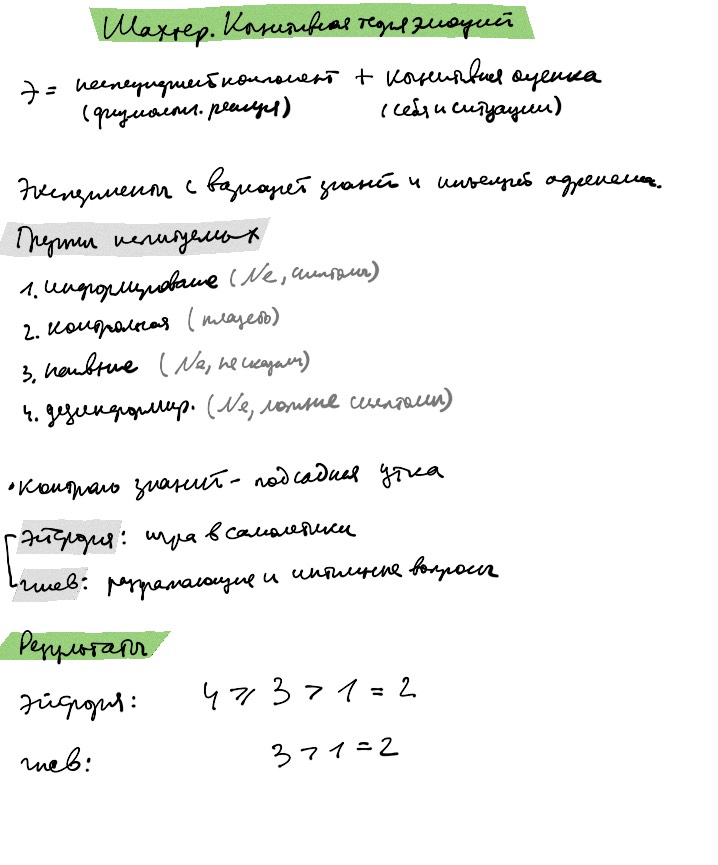 Шахтер. Когнитивная теория эмоций
Э = неспецифический компонент + когнитивная оценка
(физиологич. реакция) (себя и ситуации)
Эксперименты с вариацией знаний и инъекцией адреналина.
Группы испытуемых
1. информирование (Ne, симптомы)
2. контрольная (плацебо)
3. наивные (Ne, не сказали)
4. дезинформир. (Ne, ложные симптомы)
• контроль знаний - подсадная утка
эйфория: игра в самолетики
гнев: раздражающие и интимные вопросы
Результаты
эйфория: 4 ⩾ 3 > 1 = 2
гнев: 3 > 1 = 2